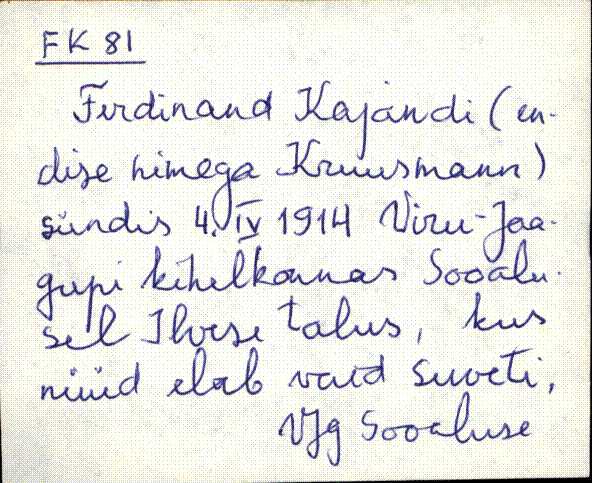 FK 81
Ferdinand Kajandi (en-
dise nimega Kruusmann)
sündis 4. IV 1914 Viru-Jaa-
gupi kihelkonnas Sooalu-
sel Ilvese talus, kus
nüüd elab vaid suveti,
VJg Sooaluse